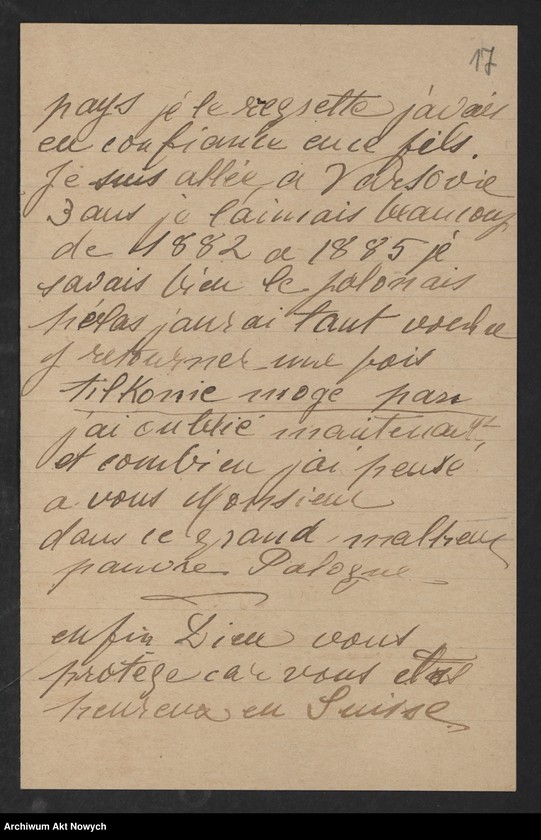 17
pays je le regrette j'avais
eu confiance en ce fils.
Je suis allée a Varsovie
3 ans je l'aimais beaucoup
de 1882 a 1885 je
savais bien le polonais
hélas j'aurai tant voulu
y retourner une fois
tilkonie moge pan
j'ai oublié maintenant,
et combien j'ai pensé
a vous Monsieur
dans ce grand malheur
pauvre Pologne
enfin Dieu vous
protège car vous etes
heureux en Suisse
Archiwum Akt Nowych